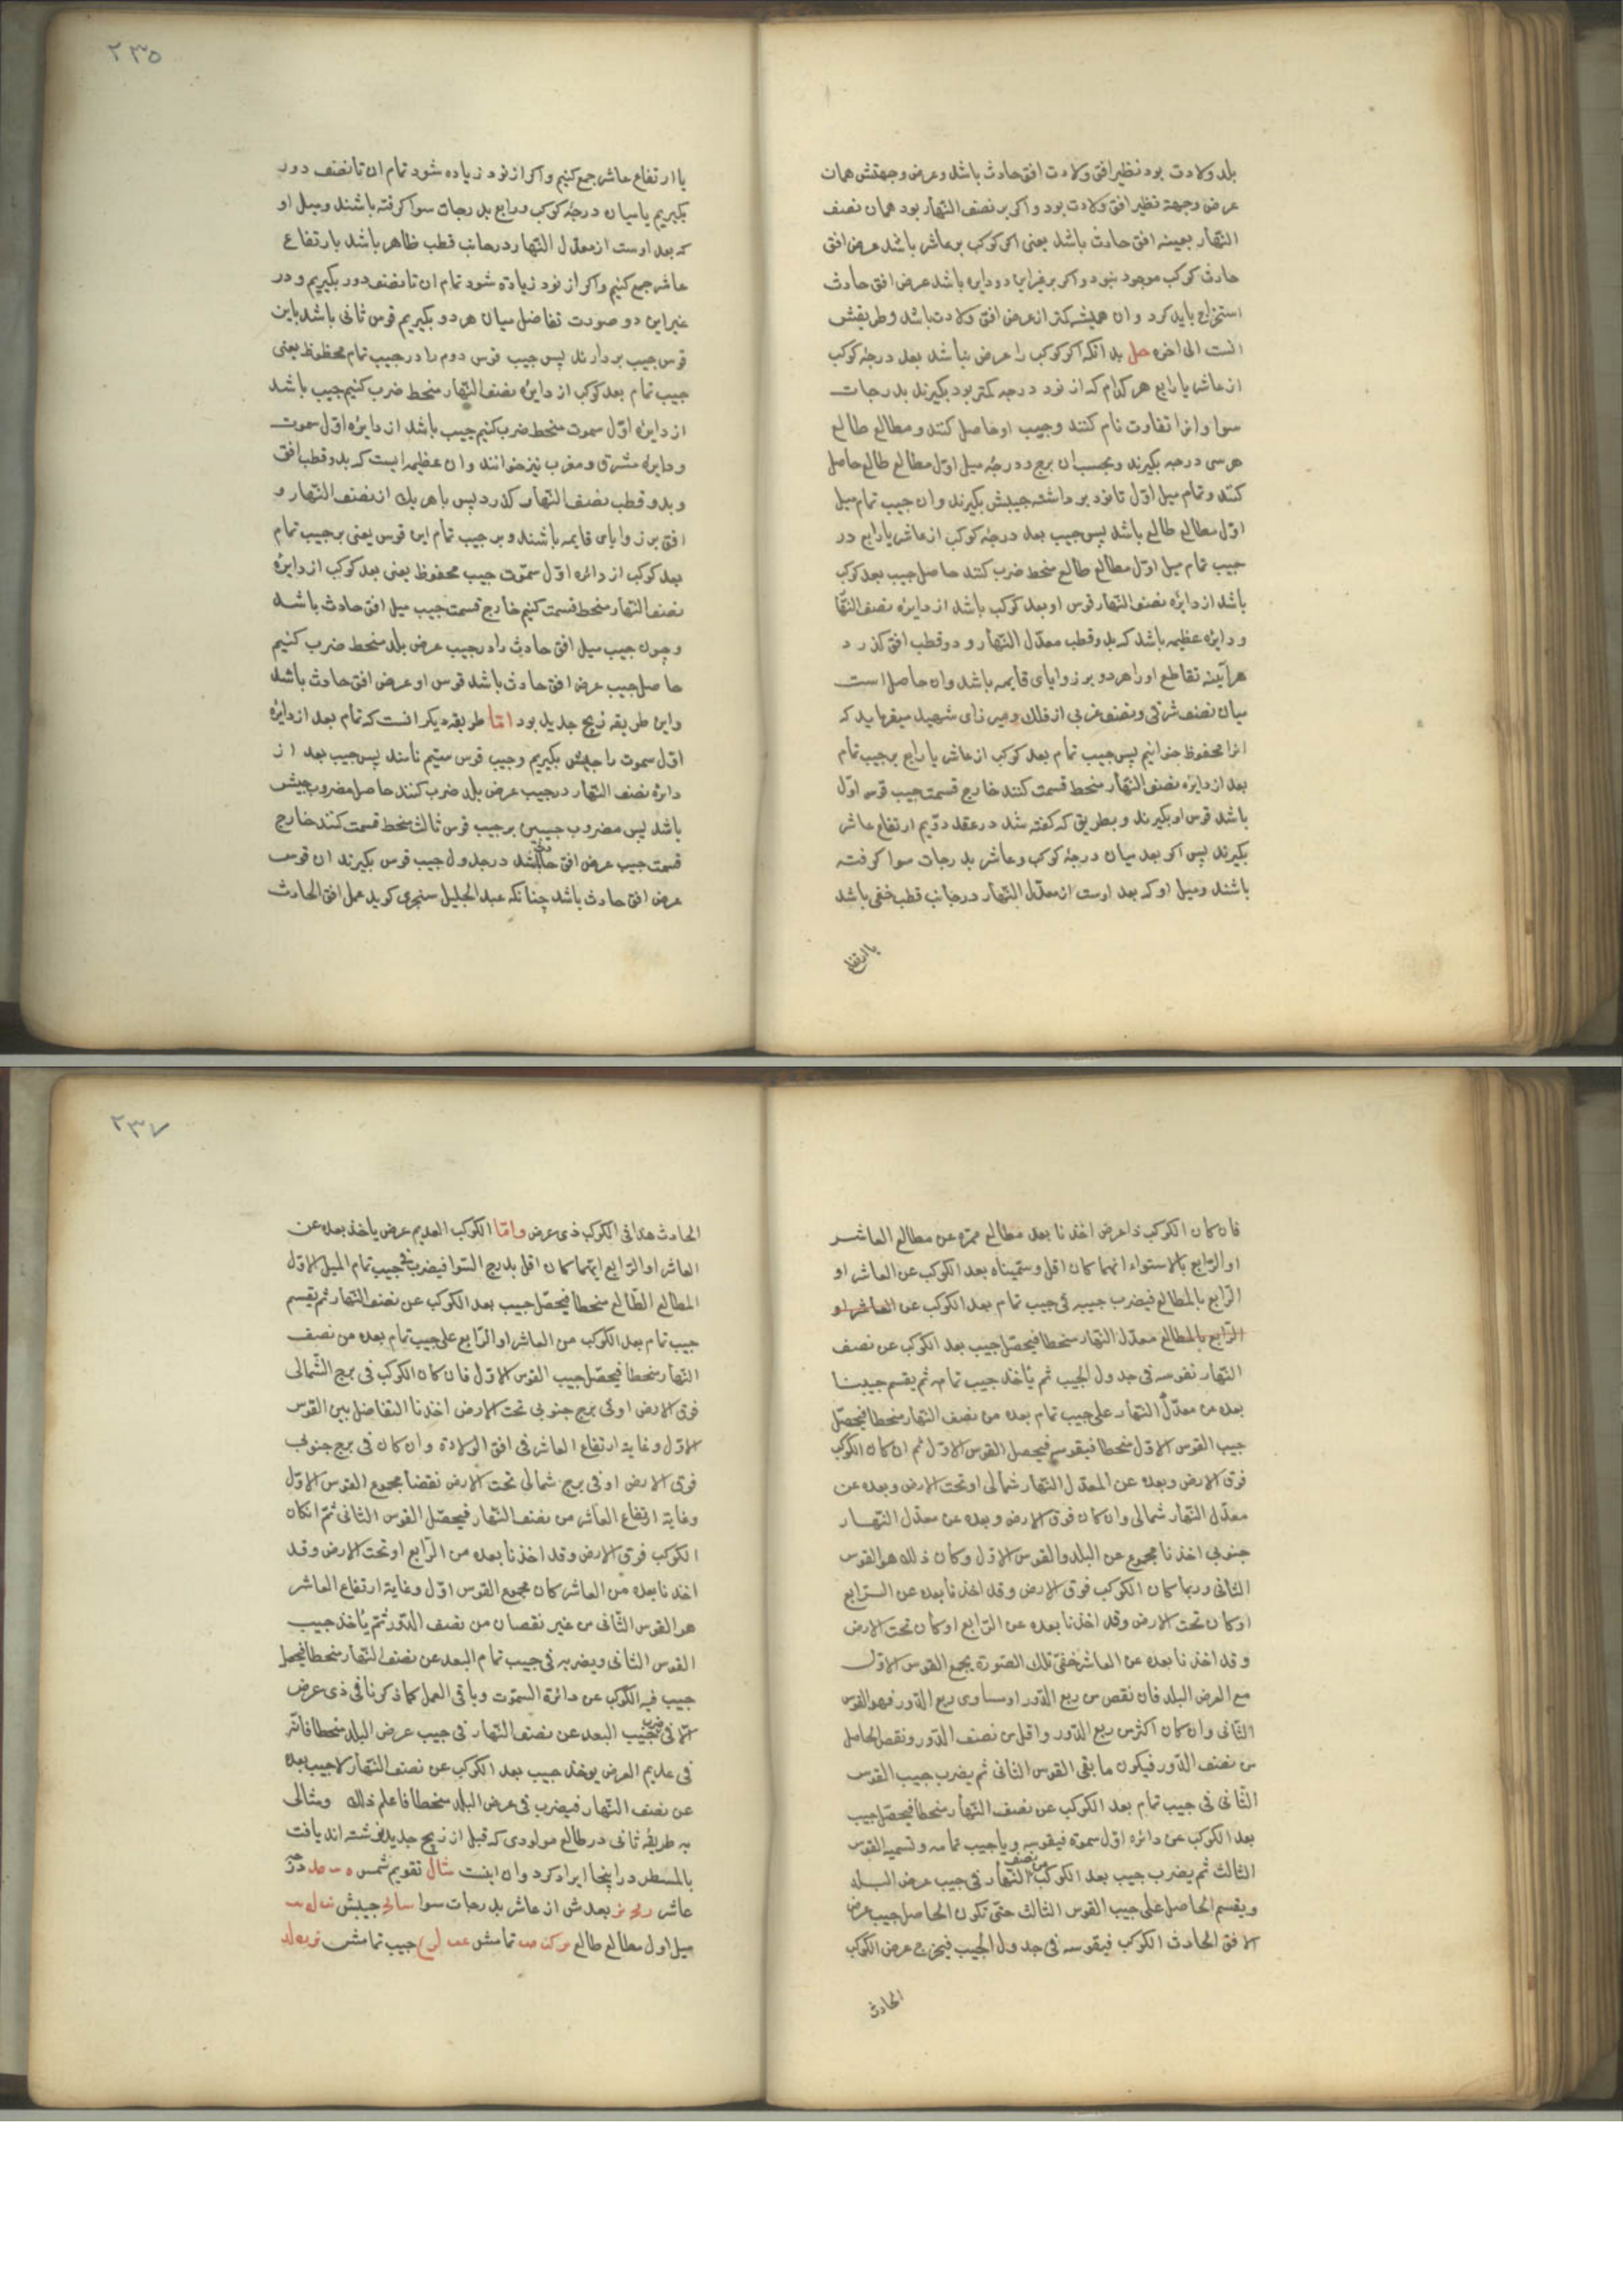 بلد ولادت بود نظیر افق ولادت افق حادث باشد و عرض وجهتش همان
عرض وجهة نظیر افق ولادت بود و اکر بر نصف النهار بود همان نصف
النهار بعینه افق حادث باشد یعنی اکر کوکب بر عاشر باشد عرض افق
حادث کوکب موجود نبود و اکر بر غیر این دو دایره باشد عرض افق حادث
استخراج باید کرد و ان همیشه کمتر از عرض افق ولادت باشد و طریقش
انست الی اخره حل بدانکه اکر کوکب را عرض نباشد بعد درجهٔ کوکب
از عاشر یا رابع هر کدام که از نود درجه کمتر بود بکیرند بدرجات
سوا و انرا تفاوت نام کنند و جیب او حاصل کنند و مطالع طالع
هر سی درجه بکیرند و بحسب ان برج و درجهٔ میل اول مطالع طالع حاصل
کنند و تمام میل اول تا نود برداشته جیبش بکیرند و ان جیب تمام میل
اول مطالع طالع باشد پس جیب بعد درجهٔ کوکب از عاشر یا رابع در
جیب تمام میل اول مطالع طالع منحط ضرب کنند حاصل جیب بعد کوکب
باشد از دایرهٔ نصف النهار قوس او بعد کوکب باشد از دایرهٔ نصف النها
و دایرهٔ عظیمه باشد که بدو قطب معدل النهار و دو قطب افق کذرد
هرآینه تقاطع او را هر دو بر زوایای قایمه باشد و ان حاصل است
میان نصف شرقی و نصف غربی از فلک و میرزای شهید میفرماید که
انرا محفوظ خوانیم پس جیب تمام بعد کوکب از عاشر یا رابع بر جیب تمام
بعد از دایرهٔ نصف النهار منحط قسمت کنند خارج قسمت جیب قوس اول
باشد قوس او بکیرند و بطریق که کفته شد در عقد دویم ارتفاع عاشر
بکیرند پس اکر بعد میان درجهٔ کوکب و عاشر بدرجات سوا کرفته
باشند و میل او که بعد اوست از معدل النهار در جانب قطب خفی باشد
با ارتفاع
٢٣٥
با ارتفاع عاشر جمع کنیم و اکر از نود زیاده شود تمام ان تا نصف دور
بکیریم یا میان درجهٔ کوکب و رابع بدرجات سوا کرفته باشند و میل او
که بعد اوست از معدل النهار در جانب قطب ظاهر باشد بارتفاع
عاشر جمع کنیم و اکر از نود زیاده شود تمام ان تا نصف دور بکیریم و در
غیر این دو صورت تفاضل میان هر دو بکیریم قوس ثانی باشد باین
قوس جیب بردارند پس جیب قوس دوم را در جیب تمام محفوظ یعنی
جیب تمام بعد کوکب از دایرهٔ نصف النهار منحط ضرب کنیم جیب باشد
از دایرهٔ اول سموت منحط ضرب کنیم جیب باشد از دایرهٔ اول سموت
و دایرهٔ مشرق و مغرب نیز خوانند و ان عظیمه ایست که بدو قطب افق
و بدو قطب نصف النهار کذرد پس با هر یک از نصف النهار و
افق بر زوایای قایمه باشند و بر جیب تمام این قوس یعنی بر جیب تمام
بعد کوکب از دائره اول سموت جیب محفوظ یعنی بعد کوکب از دایرهٔ
نصف النهار منحط قسمت کنیم خارج قسمت جیب میل افق حادث باشد
و چون جیب میل افق حادث را در جیب عرض بلد منحط ضرب کنیم
حاصل جیب عرض افق حادث باشد قوس او عرض افق حادث باشد
و این طریقه زیج جدید بود اما طریقه دیکر انست که تمام بعد از دایرهٔ
اول سموت را جیبش بکیریم و جیب قوس سیم نامند پس جیب بعد از
دائره نصف النهار در جیب عرض بلد ضرب کنند حاصل مضروب جیبش
باشد پس مضروب جیبین بر جیب قوس ثالث منحط قسمت کنند خارج
قسمت جیب عرض افق حادث باشد در جدول جیب قوس بکیرند ان قوس
عرض افق حادث باشد چنانکه عبد الجلیل سنجری کوید عمل افق الحادث
فان کان الکوکب ذا عرض اخذنا بعد مطالع ممره عن مطالع العاشر
او الرابع بالاستواء ایهما کان اقل و سمیناه بعد الکوکب عن العاشر او
الرابع بالمطالع فیضرب جیبه فی جیب تمام بعد الکوکب عن العاشر او
الرابع بالمطالع معدل النهار منحطا فیحصل جیب بعد الکوکب عن نصف
النهار نقوسه فی جدول الجیب ثم یاخذ جیب تمامه ثم یقسم جیبنا
بعده من معدل النهار علی جیب تمام بعده من نصف النهار منحطا فیحصل
جیب القوس الاول منحطا فیقوسه فیحصل القوس الاول ثم ان کان الکوکب
فوق الارض و بعده عن المعدل النهار شمالی او تحت الارض و بعده عن
معدل النهار شمالی و ان کان فوق الارض و بعده عن معدل النهار
جنوبی اخذنا مجموع عن البلد و القوس الاول و کان ذلک هو القوس
الثانی و ربما کان الکوکب فوق الارض و قد اخذنا بعده عن الرابع
او کان تحت الارض و قد اخذنا بعده عن الرابع او کان تحت الارض
و قد اخذنا بعده عن العاشر ففی تلک الصورة یجمع القوس الاول
مع العرض البلد فان نقص من ربع الدور او ساوی ربع الدور فهو القوس
الثانی و ان کان اکثر من ربع الدور و اقل من نصف الدور و نقص الحاصل
من نصف الدور فیکون ما بقی القوس الثانی ثم یضرب جیب القوس
الثانی فی جیب تمام بعد الکوکب عن نصف النهار منحطا فیحصل جیب
بعد الکوکب عن دائره اول سموة فیقوسه و یاجیب تمامه و تسمیه القوس
الثالث ثم یضرب جیب بعد الکوکب من نصف النهار فی جیب عرض البلد
و یقسم الحاصل علی جیب القوس الثالث حتی تکون الحاصل جیب عرض
الافق الحادث الکوکب فیقوسه فی جدول الجیب فیخرج عرض الکوکب
الحادث
٢٣٧
الحادث هذا فی الکوکب ذی عرض و اما الکوکب العدیم عرض یاخذ بعده عن
العاشر او الرابع ایهما کان اقل بدرج السوا فیضرب فی جیب تمام المیل الاول
المطالع الطالع منحطا فیحصل جیب بعد الکوکب عن نصف النهار ثم یقسم
جیب تمام بعد الکوکب من العاشر او الرابع علی جیب تمام بعده من نصف
النهار منحطا فیحصل جیب القوس الاول فان کان الکوکب فی برج الشمالی
فوق الارض او فی برج جنوبی تحت الارض اخذنا التفاضل بین القوس
الاول و غایة ارتفاع العاشر فی افق الولادة و ان کان فی برج جنوبی
فوق الارض او فی برج شمالی تحت الارض نقضا مجموع القوس الاول
و غایة ارتفاع العاشر من نصف النهار فیحصل القوس الثانی ثم انکان
الکوکب فوق الارض و قد اخذنا بعده من الرابع او تحت الارض و قد
اخذنا بعده من العاشر کان مجموع القوس اول و غایة ارتفاع العاشر
هو القوس الثانی من غیر نقصان من نصف الدور ثم یاخذ جیب
القوس الثانی و یضربه فی جیب تمام البعد عن نصف النهار منحطا فیحصل
جیب فیه الکوکب عن دائرة السموت و باقی العمل کما ذکرنا فی ذی عرض
الا فی ضرب جیب البعد عن نصف النهار فی جیب عرض البلد منحطا فانه
فی عدیم العرض یوخذ جیب بعد الکوکب عن نصف النهار لا جیب بعده
عن نصف النهار فیضرب فی عرض البلد منحطا فاعلم ذلک و مثالی
به طریقهٔ ثانی در طالع مولودی که قبل از زیج جدید نوشته اند یافت
بالمسطر در اینجا ایراد کرد و ان اینست مثال تقویم شمس
عاشر بعدش از عاشر بدرجات سوا جیبش
میل اول مطالع طالع تمامش جیب تمامش